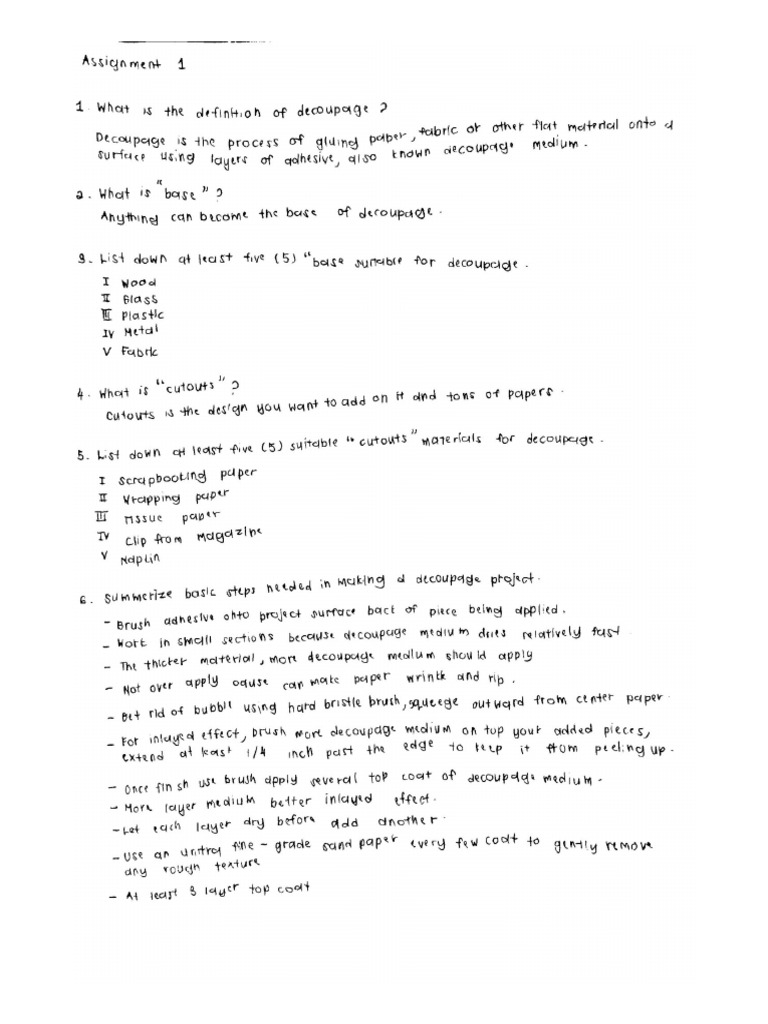 Assignment 1
1. What is the definition of decoupage ?
Decoupage is the process of gluing paper, fabric or other flat material onto a
surface using layers of adhesive, also known decoupage medium.
2. What is "base" ?
Anything can become the base of decoupage.
3. List down at least five (5) "base suitable for decoupage.
I Wood
II Glass
III Plastic
IV Metal
V Fabric
4. What is "cutouts" ?
Cutouts is the design you want to add on it and tons of papers.
5. List down at least five (5) suitable "cutouts" materials for decoupage.
I Scrapbooking paper
II Wrapping paper
III Tissue paper
IV Clip from magazine
V Napkin
6. Summerize basic steps needed in making a decoupage project.
- Brush adhesive onto project surface back of piece being applied.
- Work in small sections because decoupage medium dries relatively fast.
- The thicker material, more decoupage medium should apply
- Not over apply cause can make paper wrinkle and rip.
- Get rid of bubble using hard bristle brush, squeege outward from center paper.
- For inlayed effect, brush more decoupage medium on top your added pieces,
extend at least 1/4 inch past the edge to keep it from peeling up.
- Once finish use brush apply several top coat of decoupage medium.
- More layer medium better inlayed effect.
- Let each layer dry before add another.
- Use an untra fine - grade sand paper every few coat to gently remove
any rough texture
- At least 3 layer top coat